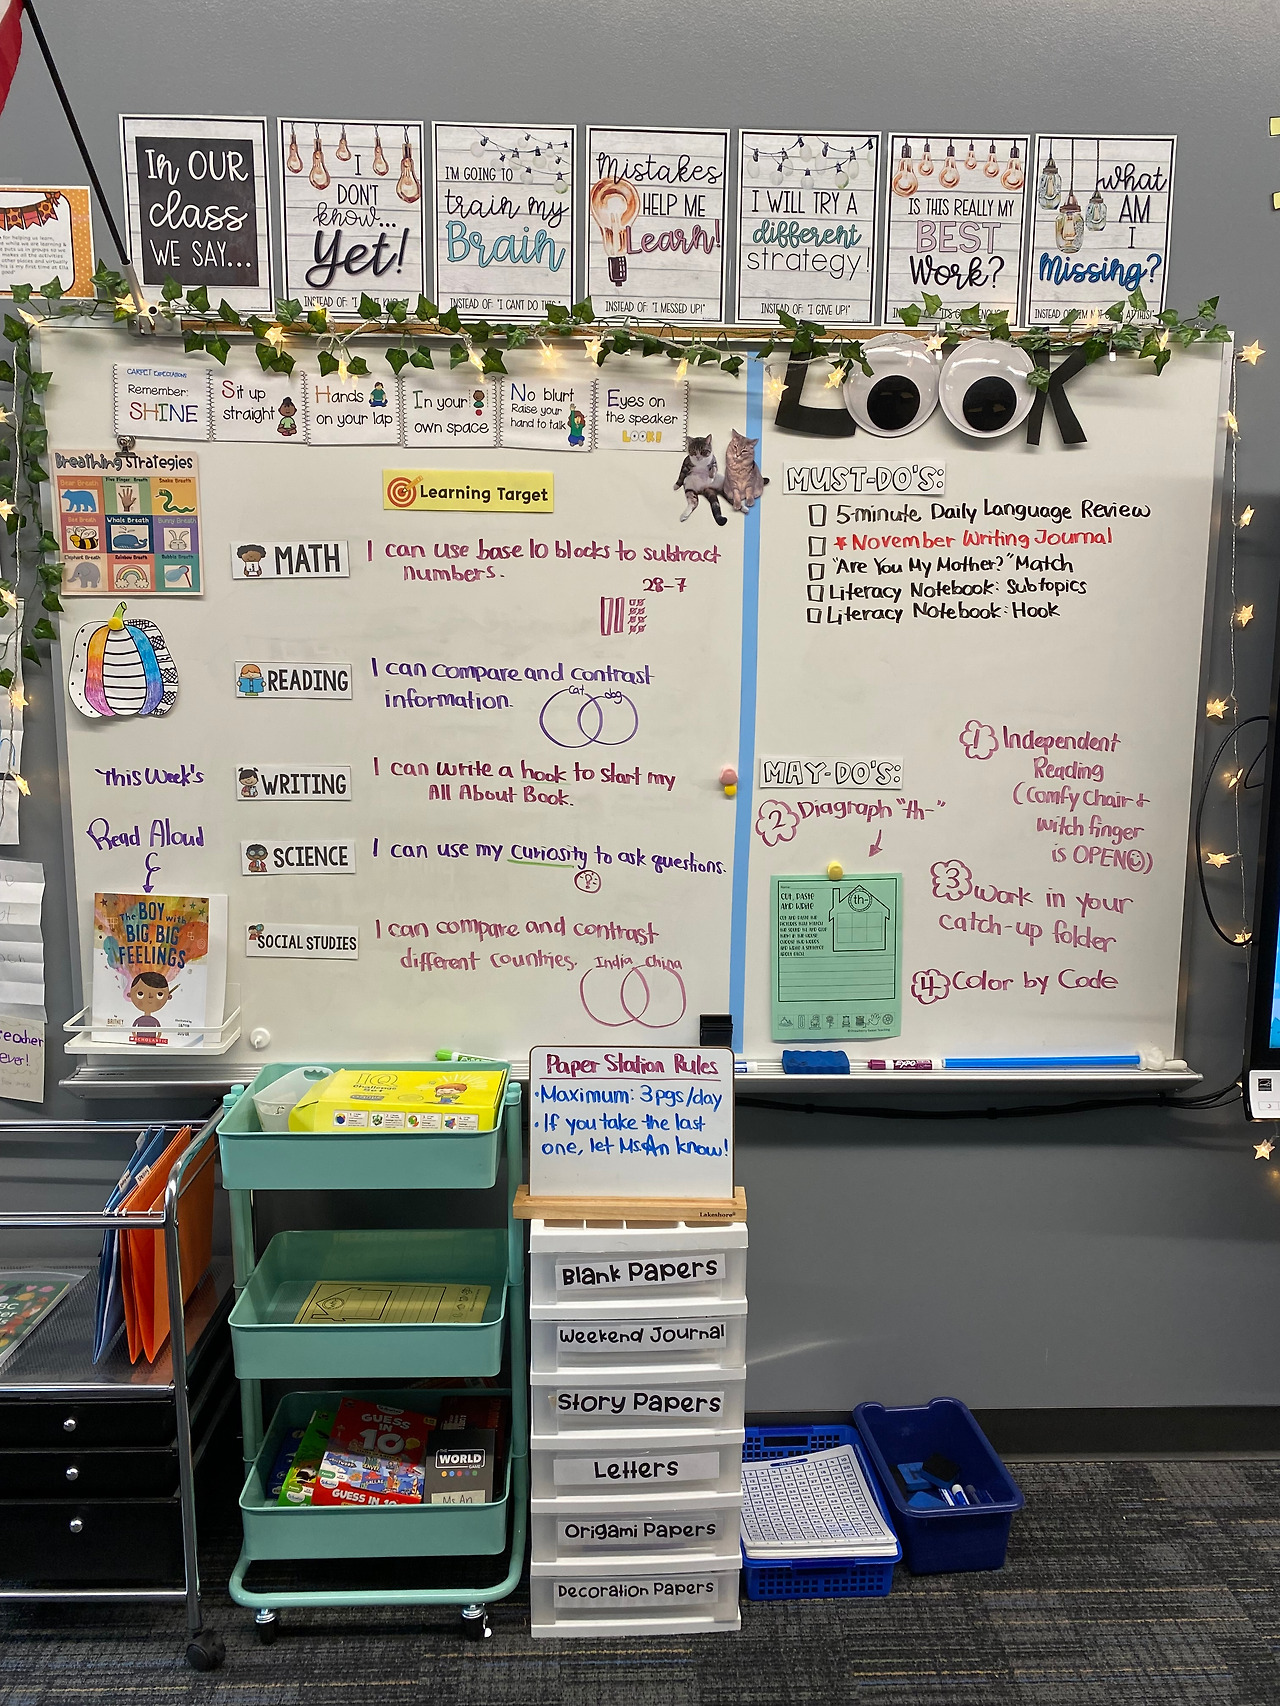 In OUR
class
WE SAY...
I
DON'T
know...
Yet!
INSTEAD OF: "I
I'M GOING TO
train my
Brain
INSTEAD OF: "I CAN'T DO THIS"
Mistakes
HELP ME
Learn!
INSTEAD OF: "I MESSED UP!"
I WILL TRY A
different
strategy!
INSTEAD OF: "I GIVE UP!"
IS THIS REALLY MY
BEST
Work?
what
AM
I
Missing?
CARPET EXPECTATIONS
Remember:
SHINE
Sit up
straight
Hands
on your lap
In your
own space
No blurt
Raise your
hand to talk
Eyes on
the speaker
LOOK!
LOOK
Breathing Strategies
Bear Breath
Five Finger Breath
Snake Breath
Bee Breath
Whale Breath
Bunny Breath
Elephant Breath
Rainbow Breath
Bubble Breath
Learning Target
MATH
I can use base 10 blocks to subtract
numbers.
28-7
READING
I can compare and contrast
information.
cat
dog
WRITING
I can write a hook to start my
All About Book.
SCIENCE
I can use my curiosity to ask questions.
SOCIAL STUDIES
I can compare and contrast
different countries.
India
China
This Week's
Read Aloud
The BOY with
BIG, BIG
FEELINGS
SCHOLASTIC
MUST-DO'S:
5-minute Daily Language Review
* November Writing Journal
"Are You My Mother?" Match
Literacy Notebook: Subtopics
Literacy Notebook: Hook
MAY-DO'S:
1 Independent
Reading
(comfy chair +
witch finger
is OPEN☺)
2 Diagraph "th-"
CUT, PASTE
AND WRITE
th-
3 Work in your
catch-up folder
4 Color by Code
EXPO
Paper Station Rules
• Maximum: 3pgs/day
• If you take the last
one, let Ms.An know!
Lakeshore
Blank Papers
Weekend Journal
Story Papers
Letters
Origami Papers
Decoration Papers
GUESS
IN
10
GUESS IN 10
THE
WORLD
GAME
Ms. An